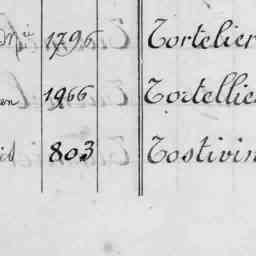 1796 Tortelier
en 1966 Tortellie
is 803 Tostivin